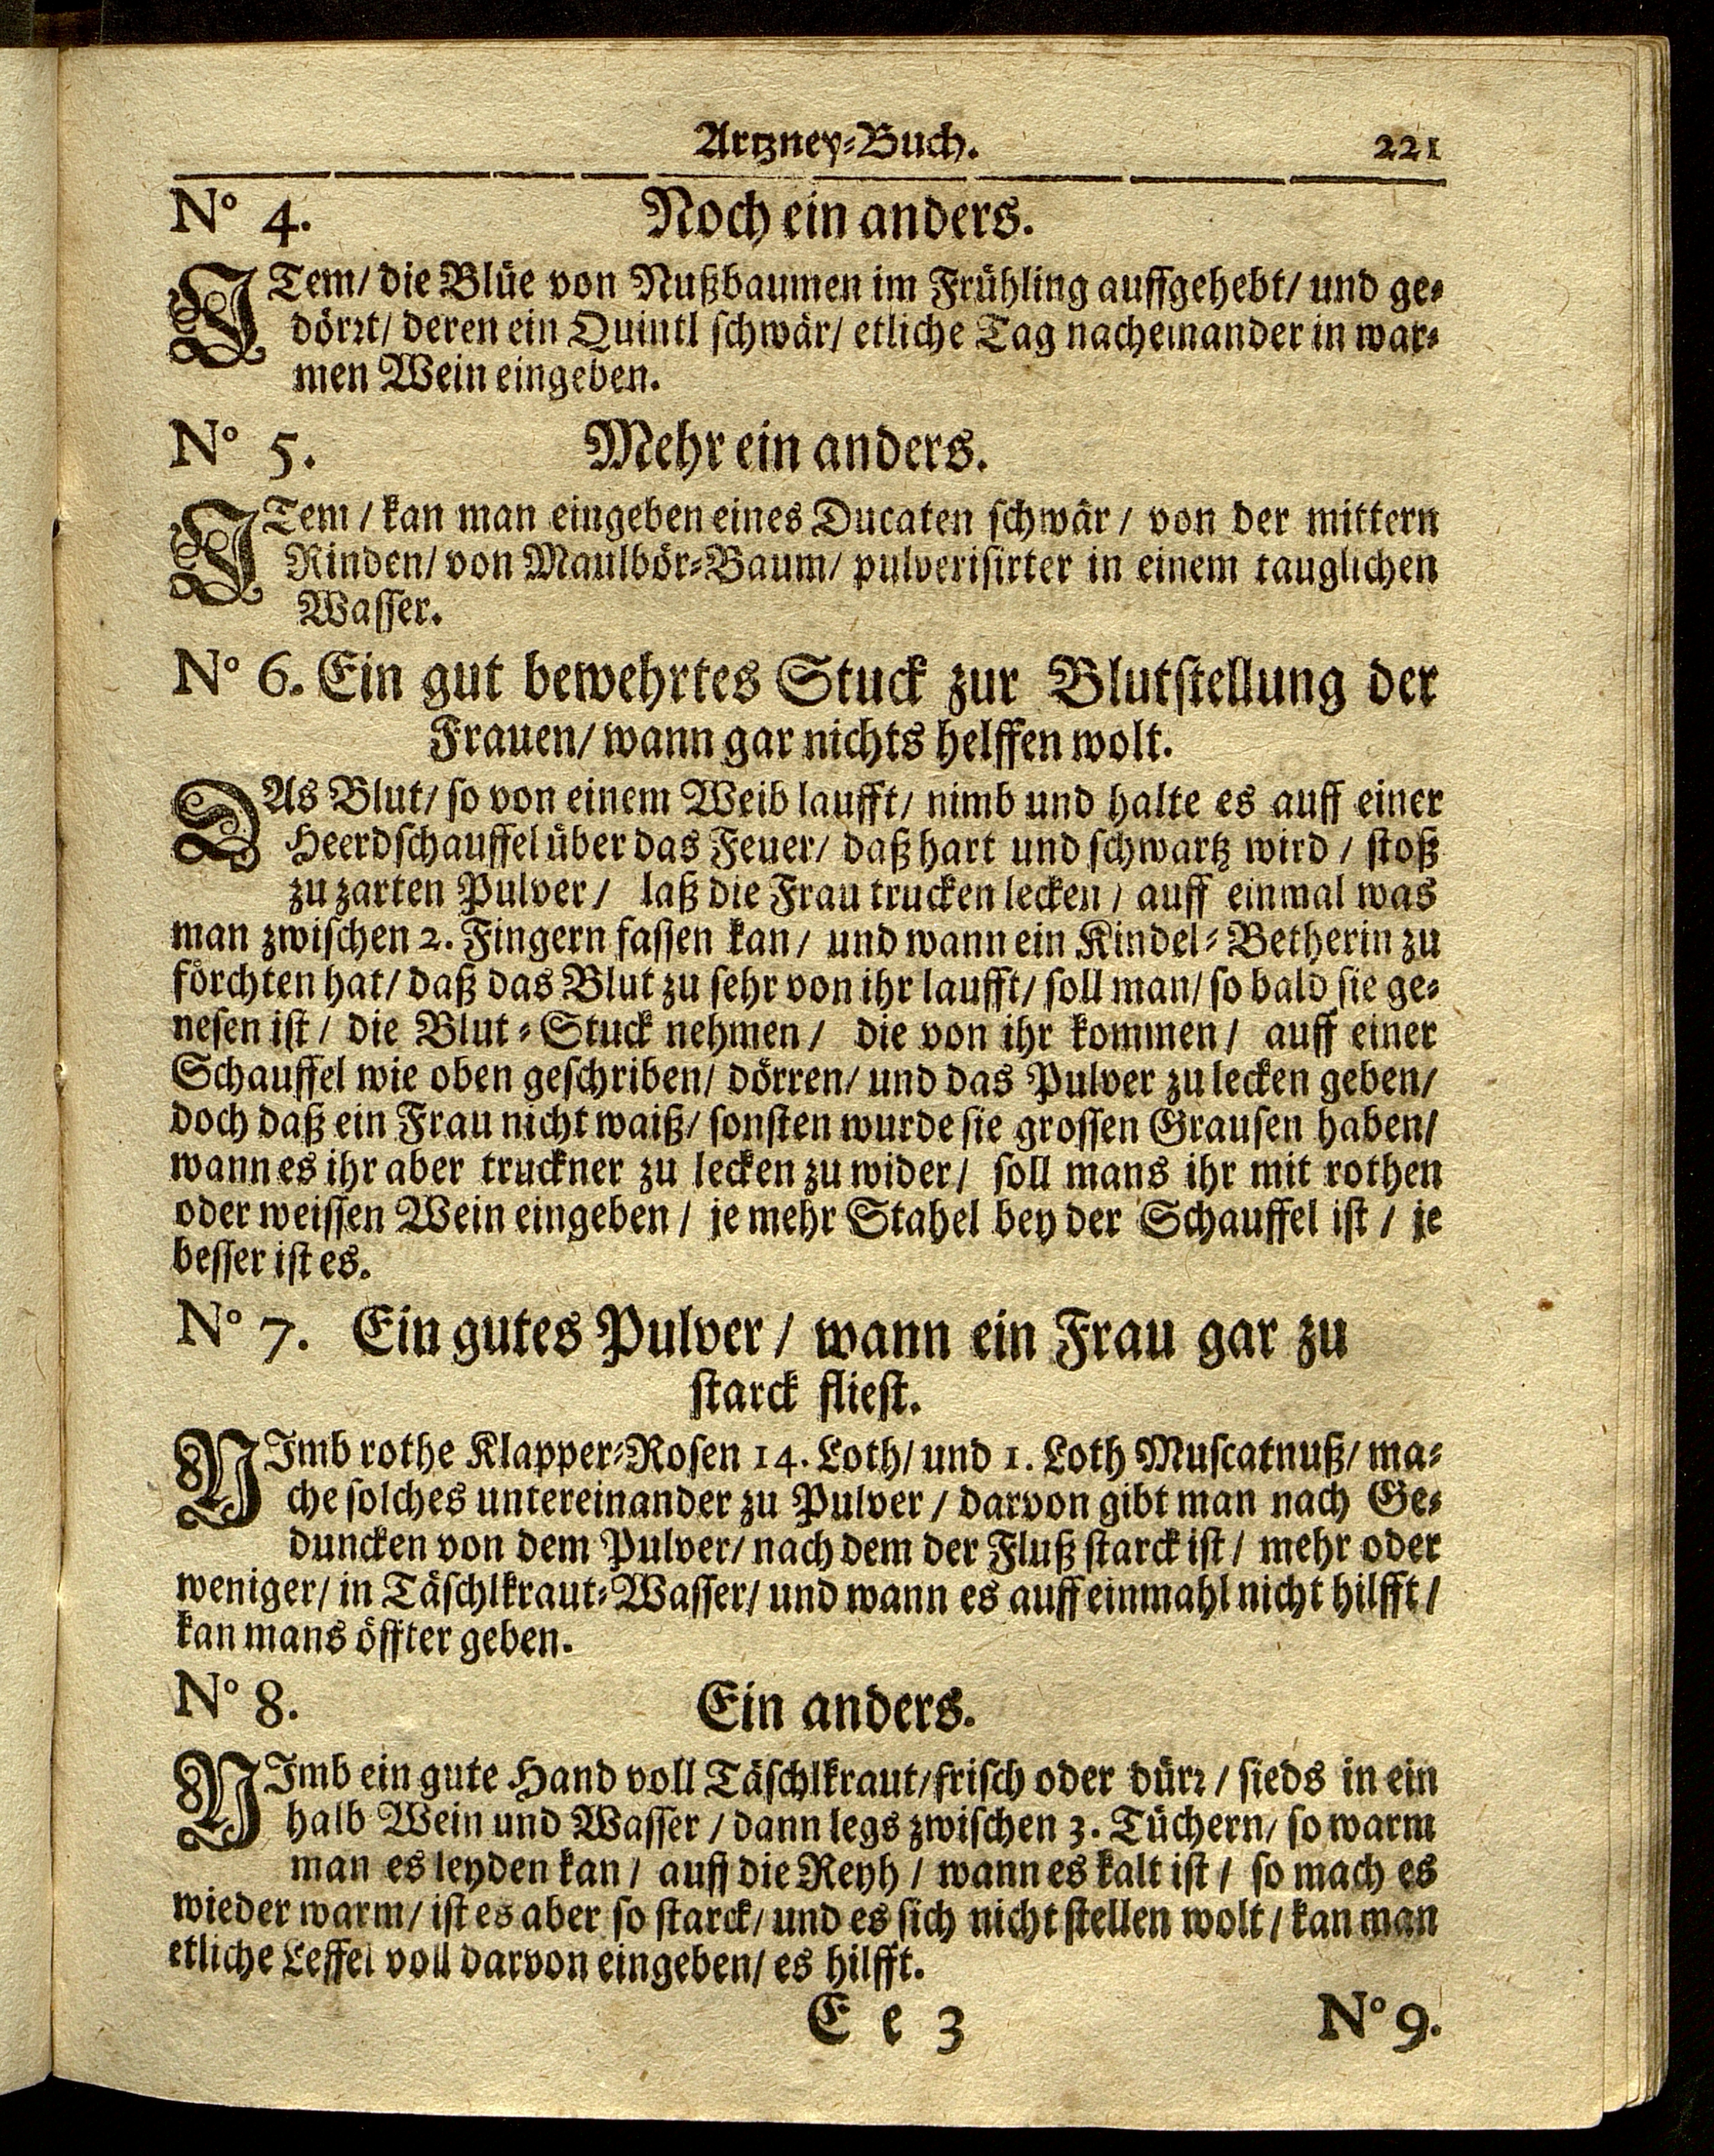 Artzney-Buch. 221
No 4. Noch ein anders.
ITem/ die Blüe von Nußbaumen im Frühling auffgehebt/ und ge-
dörrt/ deren ein Quintl schwär/ etliche Tag nacheinander in war-
men Wein eingeben.
No 5. Mehr ein anders.
ITem / kan man eingeben eines Ducaten schwär / von der mittern
Rinden/ von Maulbör-Baum/ pulverisirter in einem tauglichen
Wasser.
No 6. Ein gut bewehrtes Stuck zur Blutstellung der
Frauen/ wann gar nichts helffen wolt.
DAs Blut/ so von einem Weib laufft/ nimb und halte es auff einer
Heerdschauffel über das Feuer/ daß hart und schwartz wird / stoß
zu zarten Pulver / laß die Frau trucken lecken / auff einmal was
man zwischen 2. Fingern fassen kan / und wann ein Kindel-Betherin zu
förchten hat/ daß das Blut zu sehr von ihr laufft/ soll man/ so bald sie ge-
nesen ist / die Blut-Stuck nehmen / die von ihr kommen / auff einer
Schauffel wie oben geschriben/ dörren/ und das Pulver zu lecken geben/
doch daß ein Frau nicht waiß/ sonsten wurde sie grossen Grausen haben/
wann es ihr aber truckner zu lecken zu wider / soll mans ihr mit rothen
oder weissen Wein eingeben / je mehr Stahel bey der Schauffel ist / je
besser ist es.
No 7. Ein gutes Pulver / wann ein Frau gar zu
starck fliest.
NImb rothe Klapper-Rosen 14. Loth/ und 1. Loth Muscatnuß/ ma-
che solches untereinander zu Pulver / darvon gibt man nach Ge-
duncken von dem Pulver/ nach dem der Fluß starck ist / mehr oder
weniger/ in Täschlkraut-Wasser/ und wann es auff einmahl nicht hilfft /
kan mans öffter geben.
No 8. Ein anders.
NImb ein gute Hand voll Täschlkraut/ frisch oder dürr / sieds in ein
halb Wein und Wasser / dann legs zwischen 3. Tüchern/ so warm
man es leyden kan / auff die Reyh / wann es kalt ist / so mach es
wieder warm/ ist es aber so starck/ und es sich nicht stellen wolt / kan man
etliche Leffel voll darvon eingeben/ es hilfft.
E e 3 No 9.